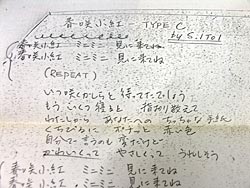 春咲小紅 - TYPE C
by S.ITOI
春咲小紅 ミニミニ 見に来てね
春咲小紅 ミニミニ 見に来てね
(REPEAT)
いつ咲くかしらと 待ってたでしょう
もう いくつ寝ると 指折り数えて
わたしから あなたへの ちっちゃな手紙
くちびるに ポオッと 赤い色
自分で言うのも 変だけど
かわいくって やさしくって うれしそう
春咲小紅 ミニミニ 見に来てね
春咲小紅 ミニミニ 見に来てね